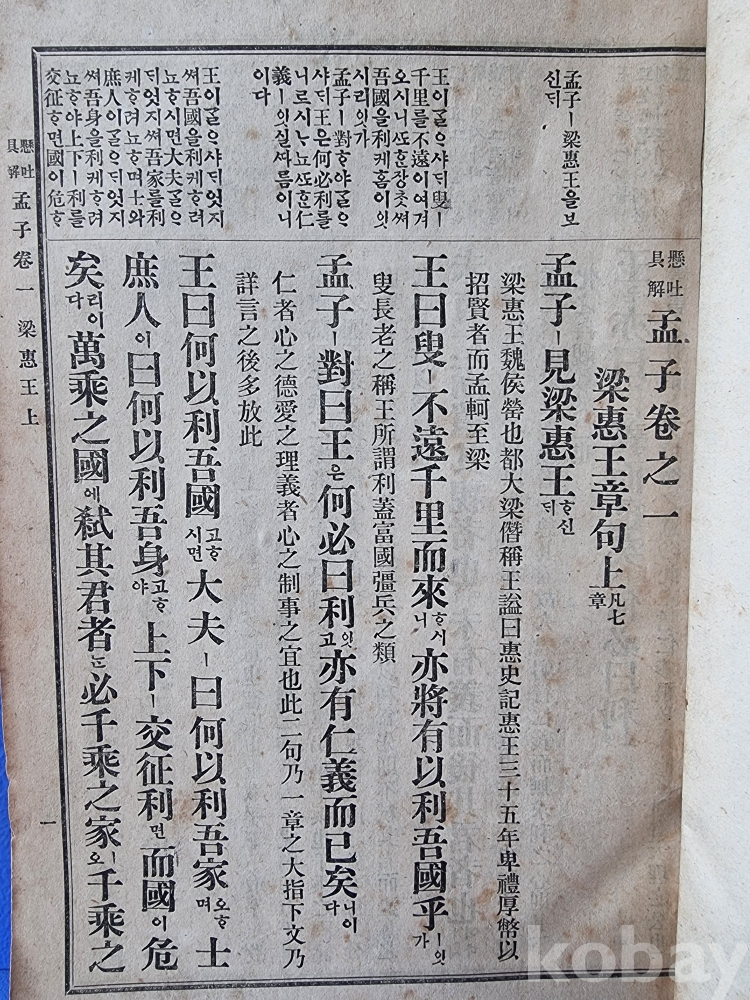 懸吐具解 孟子卷之一
梁惠王章句上 凡七章
孟子ㅣ見梁惠王ᄒᆞ신ᄃᆡ
梁惠王魏侯罃也都大梁僭稱王謚曰惠史記惠王三十五年卑禮厚幣以
招賢者而孟軻至梁
王曰叟ㅣ不遠千里而來ᄒᆞ시니亦將有以利吾國乎ㅣ잇가
叟長老之稱王所謂利蓋富國彊兵之類
孟子ㅣ對曰王은何必曰利잇고亦有仁義而已矣니이다
仁者心之德愛之理義者心之制事之宜也此二句乃一章之大指下文乃
詳言之後多放此
王曰何以利吾國고ᄒᆞ시면大夫ㅣ曰何以利吾家오ᄒᆞ며士
庶人이曰何以利吾身고ᄒᆞ야上下ㅣ交征利면而國이危
矣리이다萬乘之國에弒其君者ᄂᆞᆫ必千乘之家ㅣ오千乘之
孟子ㅣ梁惠王을보
신ᄃᆡ
王이ᄀᆞᆯᄋᆞ샤ᄃᆡ叟ㅣ
千里를不遠이여겨
오시니ᄯᅩᄒᆞᆫ장ᄎᆞᆺ써
吾國을利케홈이잇
시리잇가
孟子ㅣ對ᄒᆞ야ᄀᆞᆯᄋᆞ
샤ᄃᆡ王은何必利를
니르시ᄂᆞ뇨ᄯᅩᄒᆞᆫ仁
義ㅣ잇실ᄯᅡ름이니
이다
王이ᄀᆞᆯᄋᆞ샤ᄃᆡ엇지
써吾國을利케ᄒᆞ려
뇨ᄒᆞ시면大夫ᄀᆞᆯᄋᆞ
ᄃᆡ엇지써吾家를利
케ᄒᆞ려뇨ᄒᆞ며士와
庶人이ᄀᆞᆯᄋᆞᄃᆡ엇지
써吾身을利케ᄒᆞ려
뇨ᄒᆞ야上下ㅣ利를
交征ᄒᆞ면國이危ᄒᆞ
懸吐具解 孟子卷一 梁惠王上
一
kobay